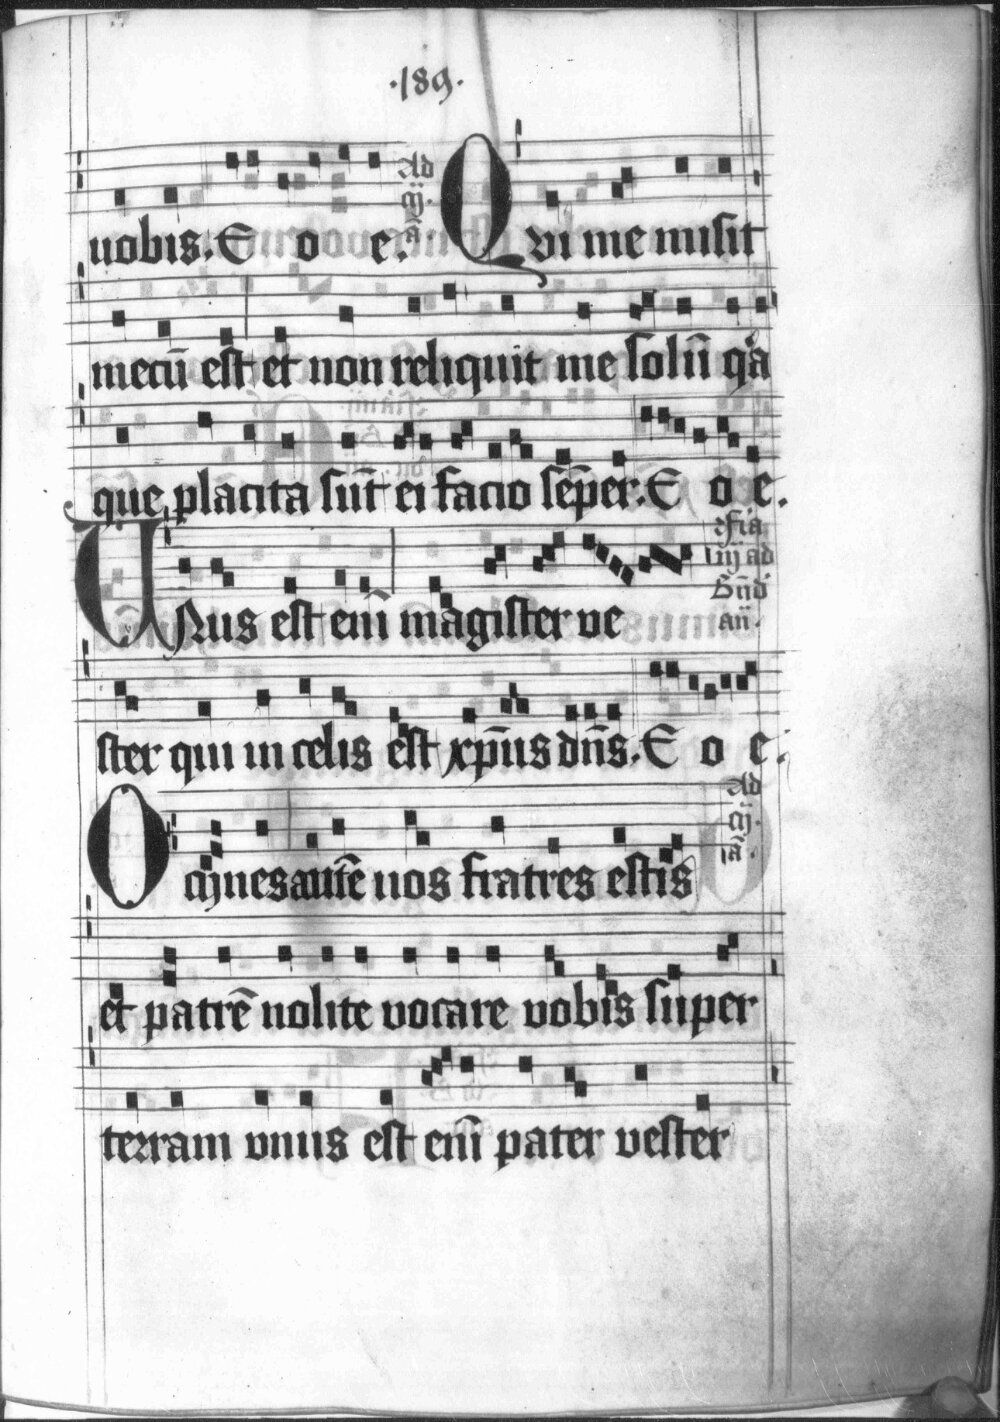 ·189·
uobis. E o e. Ad
Qvi me misit
mecū est et non reliquit me solū qa
que placita sūt ei facio sēper. E o e.
Unus est enī magister ve feria iiij ad Bn̄d an̄.
ster qui in celis est xp̄us dn̄s. E o e. Ad
Omnes autē uos fratres estis
et patrē nolite vocare vobis super
terram vnus est enī pater vester